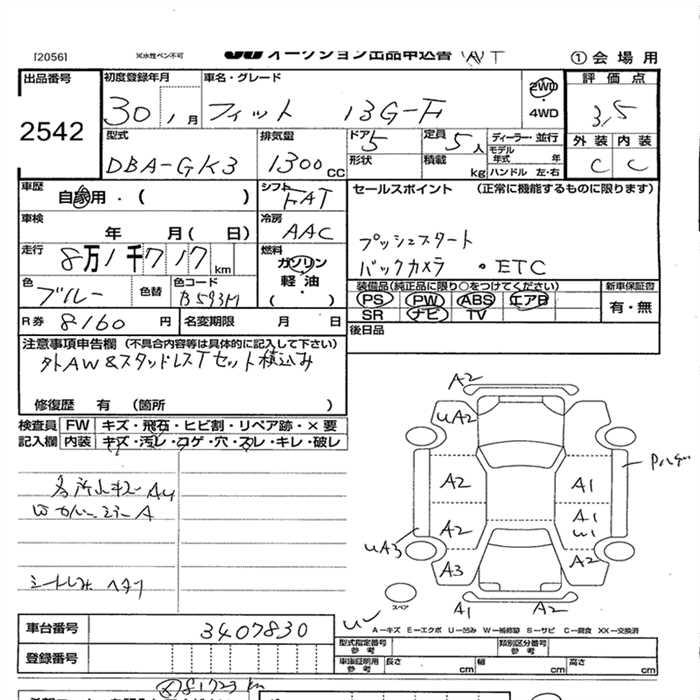 [2056] ※水性ペン不可 オークション出品申込書 ①会場用
出品番号 初度登録年月 車名・グレード 2WD 評価点
2542 30 1月 フィット 13G-F 4WD 3.5
型式 排気量 ドア 5 定員 5人 ディーラー・並行 外装 内装
DBA-GK3 1300CC 形状 積載 kg モデル年式 年 ハンドル 左・右 C C
車歴 自家用・( ) シフト FAT セールスポイント (正常に機能するものに限ります)
車検 年 月( 日) 冷房 AAC
プッシュスタート
走行 8万1千717km 燃料 ガソリン
バックカメラ ・ETC
軽油 ( )
色 ブルー 色替 色コード B593M
装備品(純正品に限り○をつけてください) 新車保証書
PS PW ABS エアB 有・無
SR ナビ TV
R券 8160円 名変期限 月 日
後日品
注意事項申告欄 (不具合内容等は具体的に記入して下さい)
外AW&スタッドレスTセット積込み
修復歴 有 (箇所 )
検査員 FW キズ・飛石・ヒビ割・リペア跡・×要
記入欄 内装 キズ・汚レ・コゲ・穴・ズレ・キレ・破レ
A2
UA2
A2 A1
A2 A1
W1
UA3 A3 A2
A1 A2
スペア
A-キズ E-エクボ U-凹み W-補修跡 S-サビ C-腐食 XX-交換済
車台番号 3407830
登録番号
型式指定番号 参考 類別区分番号 参考
車検証明用 参考 長さ cm 幅 cm 高さ cm
81723km